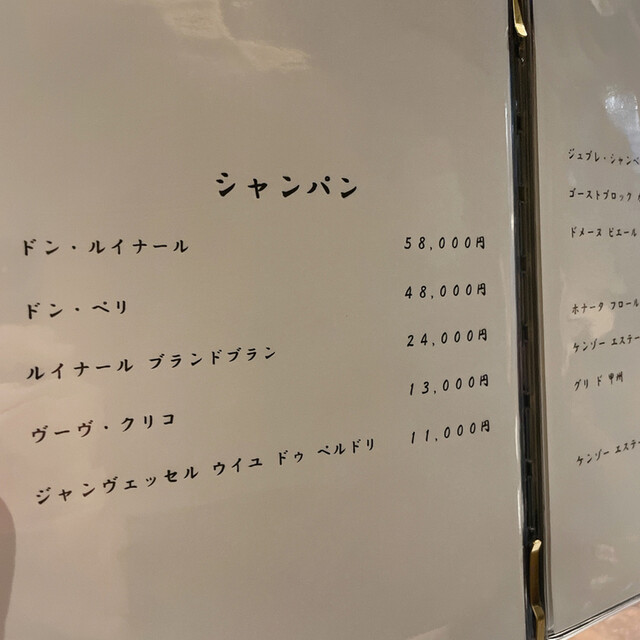 シャンパン
ドン・ルイナール 58,000円
ドン・ペリ 48,000円
ルイナール ブランドブラン 24,000円
ヴーヴ・クリコ 13,000円
ジャンヴェッセル ウイユ ドゥ ペルドリ 11,000円
ジュブレ・シャンベ
ゴーストブロック
ドメーヌ ピエール
ホナータ フロール
ケンゾー エステー
グリ ド 甲州
ケンゾー エステー